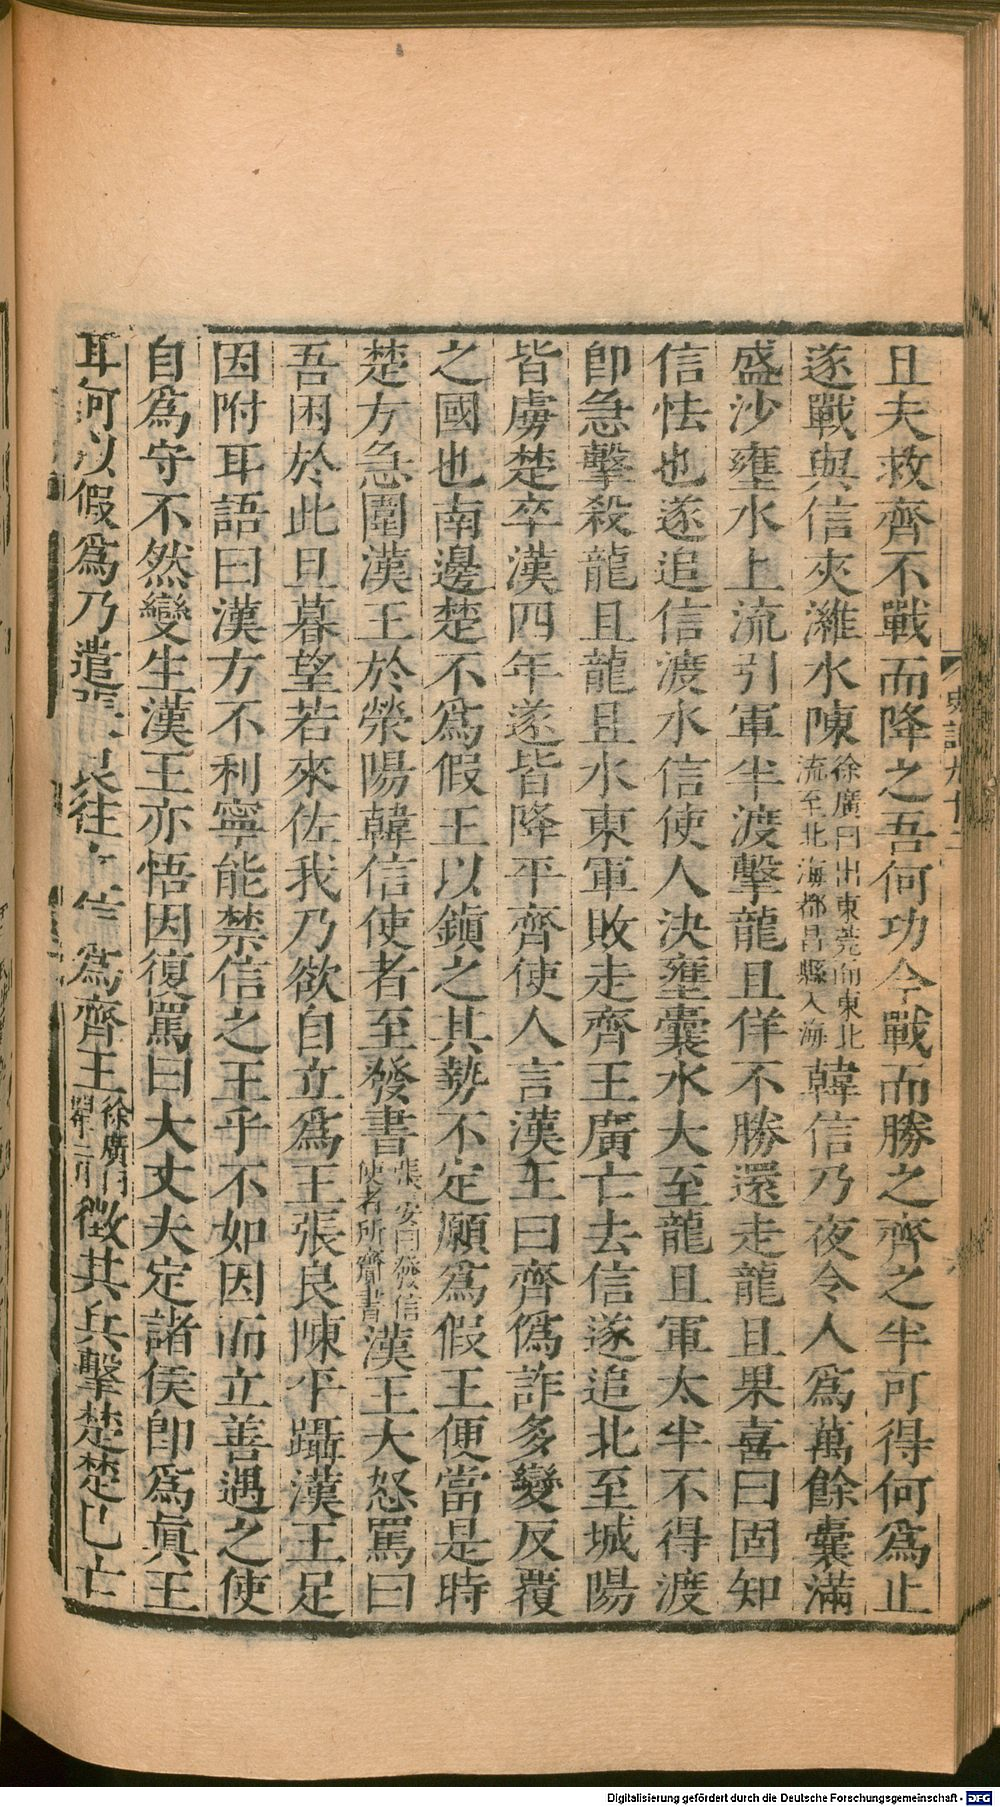 且夫救齊不戰而降之吾何功今戰而勝之齊之半可得何爲止
遂戰與信夾濰水陳徐廣曰出東莞而東北流至北海都昌縣入海韓信乃夜令人爲萬餘囊滿
盛沙壅水上流引軍半渡擊龍且佯不勝還走龍且果喜曰固知
信怯也遂追信渡水信使人決壅囊水大至龍且軍太半不得渡
卽急擊殺龍且龍且水東軍敗走齊王廣亡去信遂追北至城陽
皆虜楚卒漢四年遂皆降平齊使人言漢王曰齊僞詐多變反覆
之國也南邊楚不爲假王以鎭之其勢不定願爲假王便當是時
楚方急圍漢王於滎陽韓信使者至發書張晏曰發信使者所齎書漢王大怒罵曰
吾困於此旦暮望若來佐我乃欲自立爲王張良陳平躡漢王足
因附耳語曰漢方不利寧能禁信之王乎不如因而立善遇之使
自爲守不然變生漢王亦悟因復罵曰大丈夫定諸侯卽爲眞王
耳何以假爲乃遣張良往信爲齊王徐廣曰二月徵其兵擊楚楚已亡
史記九十二
Digitalisierung gefördert durch die Deutsche Forschungsgemeinschaft - DFG